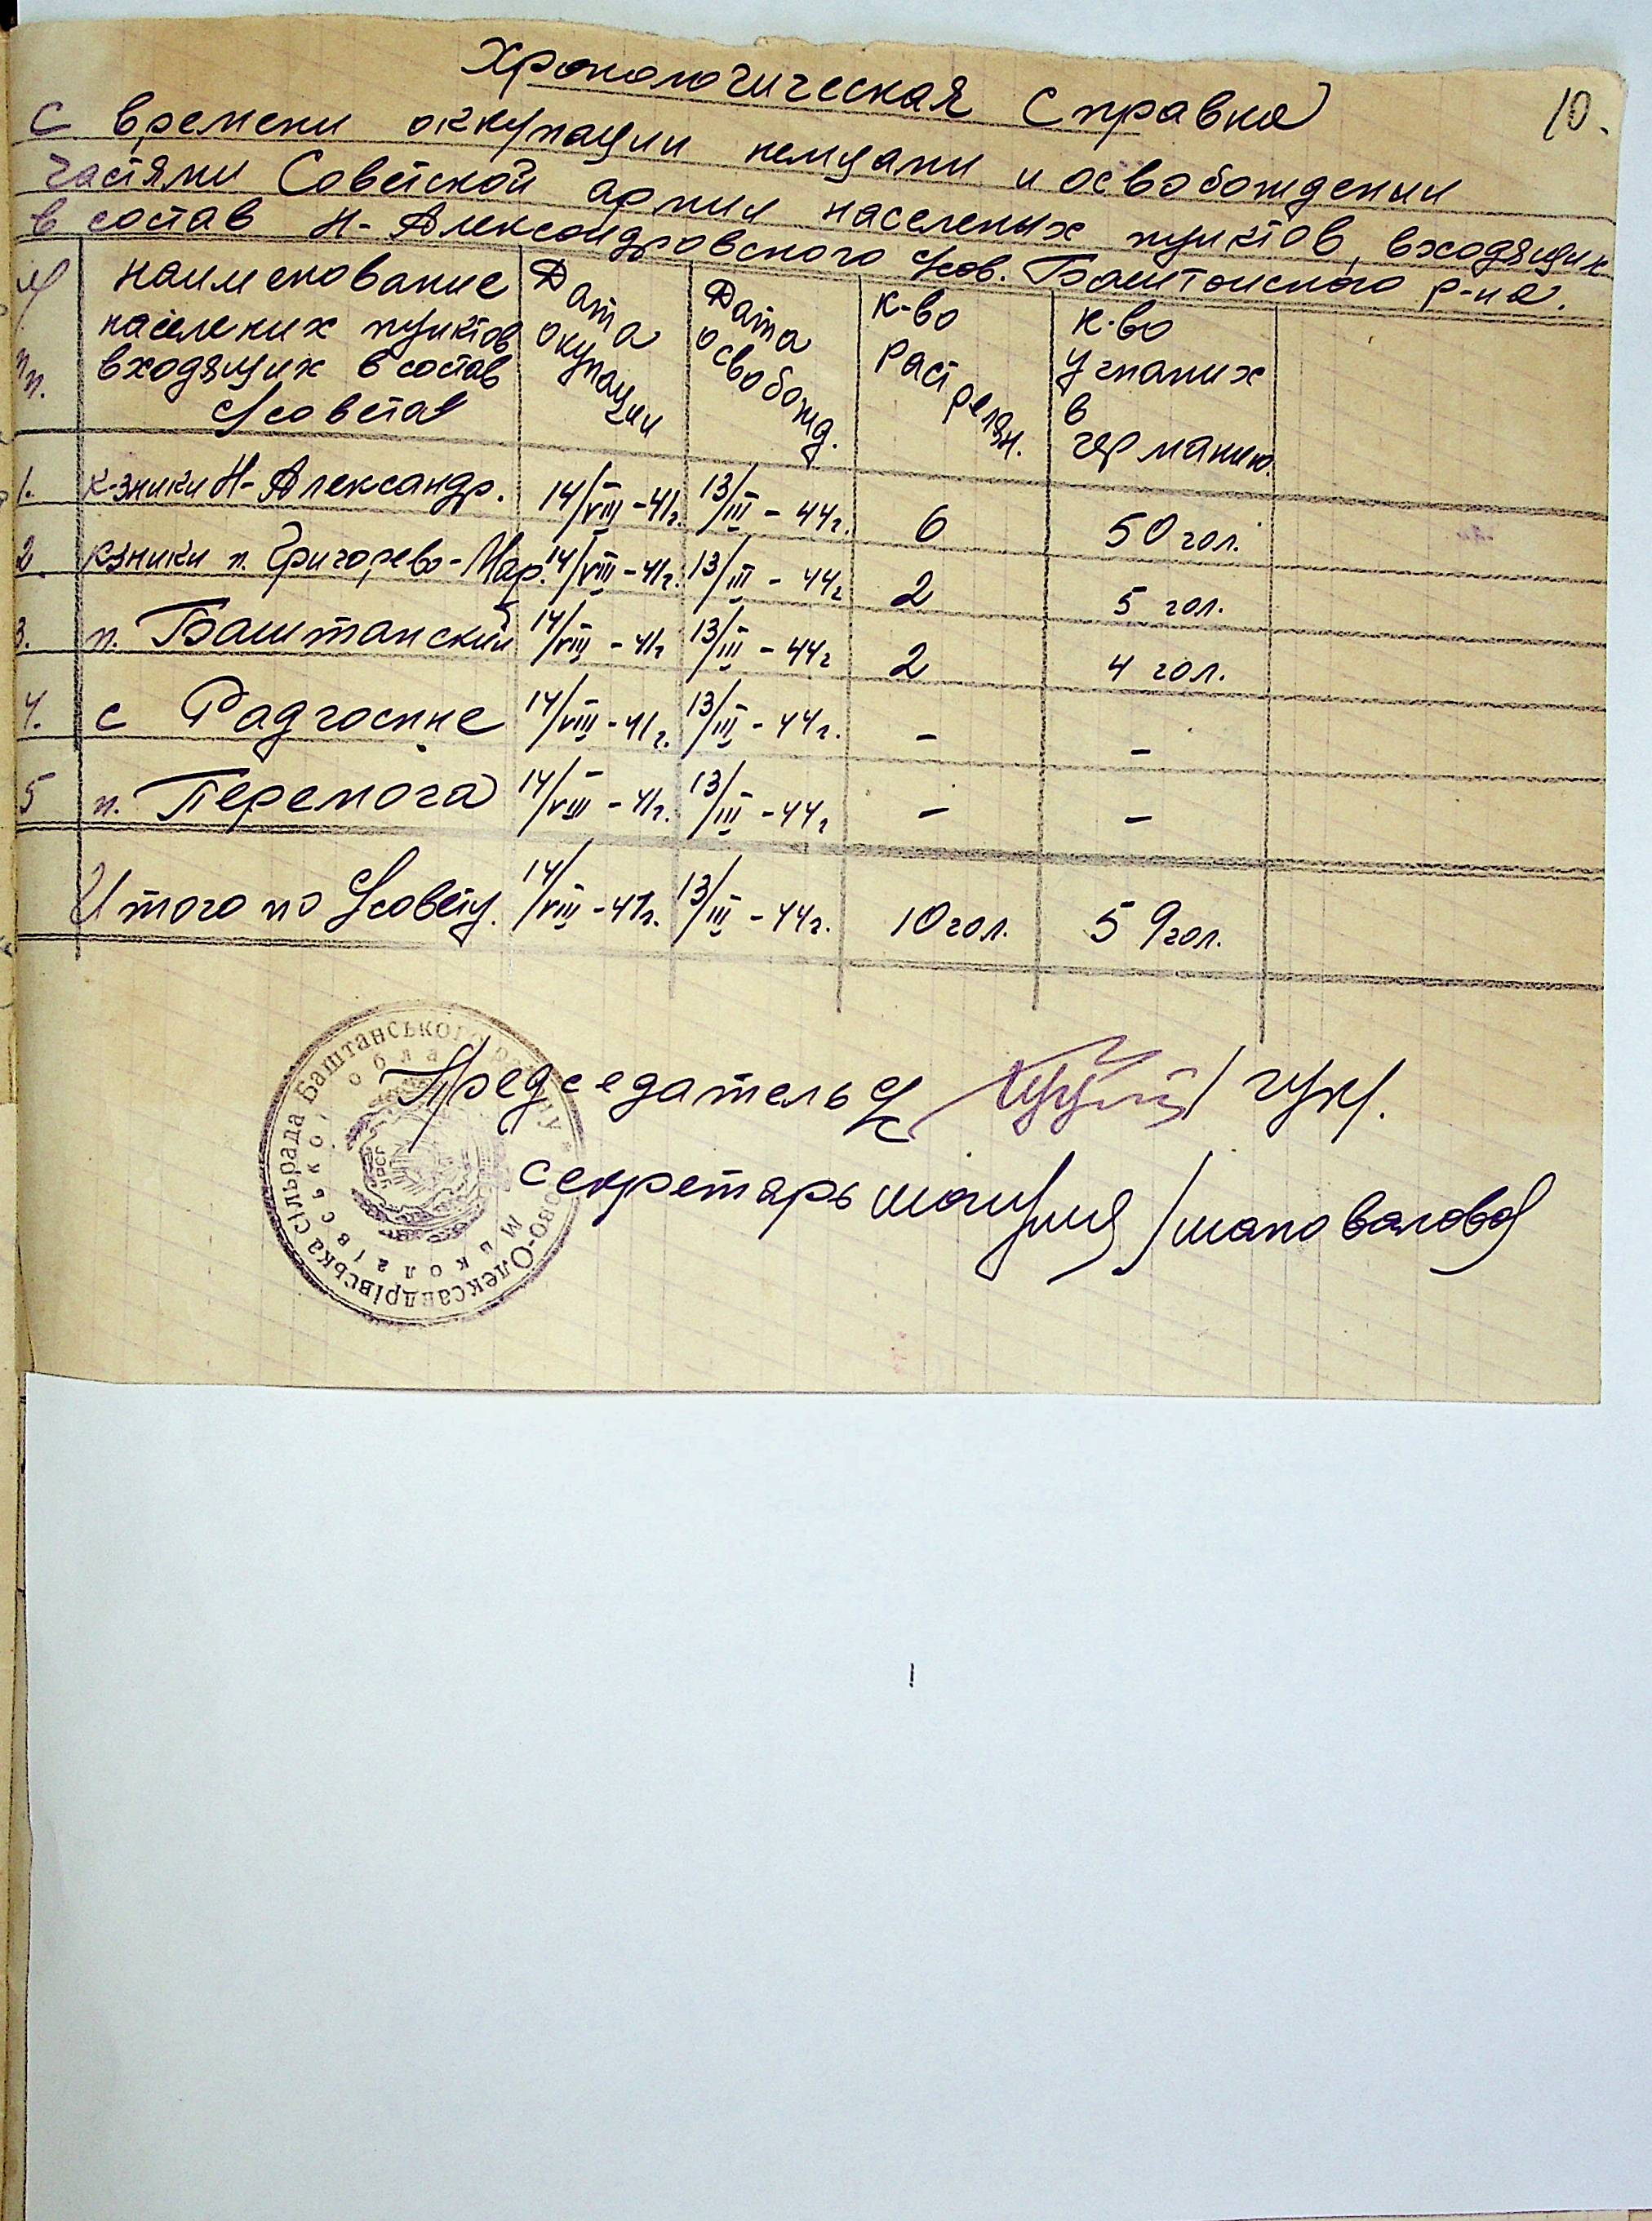 10.
Хронологическая справка
с времени оккупации немцами и освобождения
частями Советской армии населеных пунктов, входящих
в состав Н-Александровского с/сов. Баштанского р-на.
№ пп. Наименование населених пунктов входящих в состав с/совета Дата окупации Дата освобожд. к-во растрелян. к-во угнаних в германию
1. Н-Александр. 14/VIII-41г. 13/III-44г. 6 50 гол.
2. п. Григорево-Мар. 14/VIII-41г. 13/III-44г 2 5 гол.
3. п. Баштанский 14/VIII-41г 13/III-44г 2 4 гол.
4. с Радгоспне 14/VIII-41г. 13/III-44г. - -
5 п. Перемога 14/VIII-41г. 13/III-44г - -
Итого по с/совету. 14/VIII-41г. 13/III-44г. 10 гол. 59 гол.
Председатель с/с
секретарь /шаповалова/
Ново-Олександрівська сільрада Баштанського району
Миколаївської обла
УРСР